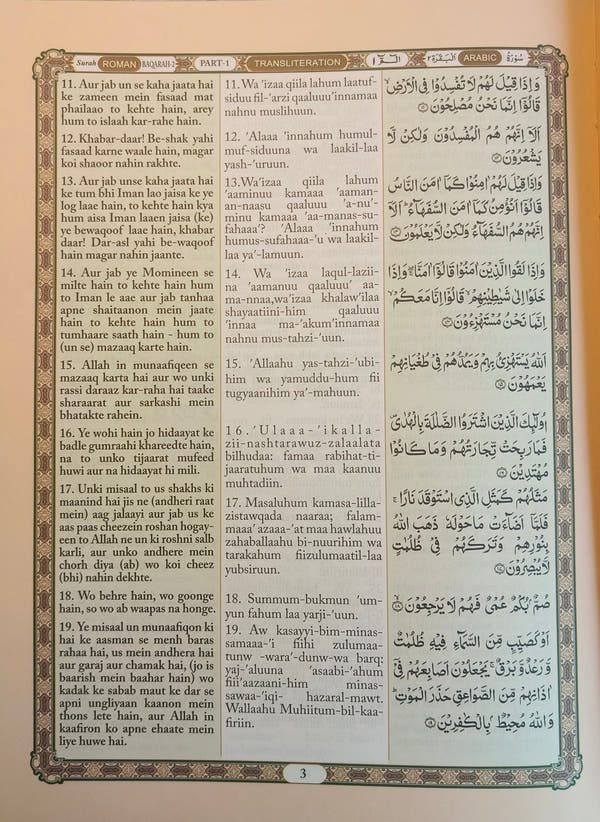 Surah ROMAN BAQARAH-2 PART-1 TRANSLITERATION الٓـرّٓ ١ اَلْبَقَرَة ٢ ARABIC سُوْرَةُ
11. Aur jab un se kaha jaata hai
ke zameen mein fasaad mat
phailaao to kehte hain, arey
hum to islaah kar-rahe hain.
12. Khabar-daar! Be-shak yahi
fasaad karne waale hain, magar
koi shaoor nahin rakhte.
13. Aur jab unse kaha jaata hai
ke tum bhi Iman lao jaisa ke ye
log laae hain, to kehte hain kya
hum aisa Iman laaen jaisa (ke)
ye bewaqoof laae hain, khabar
daar! Dar-asl yahi be-waqoof
hain magar nahin jaante.
14. Aur jab ye Momineen se
milte hain to kehte hain hum
to Iman le aae aur jab tanhaa
apne shaitaanon mein jaate
hain to kehte hain hum to
tumhaare saath hain - hum to
(un se) mazaaq karte hain.
15. Allah in munaafiqeen se
mazaaq karta hai aur wo unki
rassi daraaz kar-raha hai taake
sharaarat aur sarkashi mein
bhatakte rahein.
16. Ye wohi hain jo hidaayat ke
badle gumraahi khareedte hain,
na to unko tijaarat mufeed
huwi aur na hidaayat hi mili.
17. Unki misaal to us shakhs ki
maanind hai jis ne (andheri raat
mein) aag jalaayi aur jab us ke
aas paas cheezein roshan hogay-
een to Allah ne un ki roshni salb
karli, aur unko andhere mein
chorh diya (ab) wo koi cheez
(bhi) nahin dekhte.
18. Wo behre hain, wo goonge
hain, so wo ab waapas na honge.
19. Ye misaal un munaafiqon ki
hai ke aasman se menh baras
rahaa hai, us mein andhera hai
aur garaj aur chamak hai, (jo is
baarish mein baahar hain) wo
kadak ke sabab maut ke dar se
apni ungliyaan kaanon mein
thons lete hain, aur Allah in
kaafiron ko apne ehaate mein
liye huwe hai.
11. Wa 'izaa qiila lahum laatuf-
siduu fil-'arzi qaaluuu'innamaa
nahnu muslihuun.
12. 'Alaaa 'innahum humul-
muf-siduuna wa laakil-laa
yash-'uruun.
13.Wa'izaa qiila lahum
'aaminuu kamaaa 'aaman-
an-naasu qaaluuu 'a-nu'-
minu kamaaa 'aa-manas-su-
fahaaa'? 'Alaaa 'innahum
humus-sufahaaa-'u wa laakil-
laa ya'-lamuun.
14. Wa 'izaa laqul-lazii-
na 'aamanuu qaaluuu' aa-
ma-nnaa,wa'izaa khalaw'ilaa
shayaatiini-him qaaluuu
'innaa ma-'akum'innamaa
nahnu mus-tahzi-'uun.
15. 'Allaahu yas-tahzi-'ubi-
him wa yamuddu-hum fii
tugyaanihim ya'-mahuun.
16.'Ulaaa-'ikalla-
zii-nashtarawuz-zalaalata
bilhudaa: famaa rabihat-ti-
jaaratuhum wa maa kaanuu
muhtadiin.
17. Masaluhum kamasa-lilla-
zistawqada naaraa; falam-
maaa' azaaa-'at maa hawlahuu
zahaballaahu bi-nuurihim wa
tarakahum fiizulumaatil-laa
yubsiruun.
18. Summum-bukmun 'um-
yun fahum laa yarji-'uun.
19. Aw kasayyi-bim-minas-
samaaa-'i fiihi zulumaa-
tunw -wara'-dunw-wa barq:
yaj-'aluuna 'asaabi-'ahum
fiii'aazaani-him minas-
sawaa-'iqi- hazaral-mawt.
Wallaahu Muhiitum-bil-kaa-
firiin.
وَاِذَا قِيْلَ لَهُمْ لَا تُفْسِدُوْا فِى الْاَرْضِ ۙ
قَالُوْۤا اِنَّمَا نَحْنُ مُصْلِحُوْنَ ۝۱۱
اَلَاۤ اِنَّهُمْ هُمُ الْمُفْسِدُوْنَ وَلٰكِنْ لَّا
يَشْعُرُوْنَ ۝۱۲
وَاِذَا قِيْلَ لَهُمْ اٰمِنُوْا كَمَاۤ اٰمَنَ النَّاسُ
قَالُوْۤا اَنُؤْمِنُ كَمَاۤ اٰمَنَ السُّفَهَآءُ ؕ اَلَاۤ
اِنَّهُمْ هُمُ السُّفَهَآءُ وَلٰكِنْ لَّا يَعْلَمُوْنَ ۝۱۳
وَاِذَا لَقُوا الَّذِيْنَ اٰمَنُوْا قَالُوْۤا اٰمَنَّا ۖۚ وَاِذَا
خَلَوْا اِلٰى شَيٰطِيْنِهِمْ ۙ قَالُوْۤا اِنَّا مَعَكُمْ ۙ
اِنَّمَا نَحْنُ مُسْتَهْزِءُوْنَ ۝۱۴
اَللّٰهُ يَسْتَهْزِئُ بِهِمْ وَيَمُدُّهُمْ فِىْ طُغْيَانِهِمْ
يَعْمَهُوْنَ ۝۱۵
اُولٰٓئِكَ الَّذِيْنَ اشْتَرَوُا الضَّلٰلَةَ بِالْهُدٰى ۪
فَمَا رَبِحَتْ تِّجَارَتُهُمْ وَمَا كَانُوْا
مُهْتَدِيْنَ ۝۱۶
مَثَلُهُمْ كَمَثَلِ الَّذِى اسْتَوْقَدَ نَارًا ۚ
فَلَمَّاۤ اَضَآءَتْ مَا حَوْلَهٗ ذَهَبَ اللّٰهُ
بِنُوْرِهِمْ وَتَرَكَهُمْ فِىْ ظُلُمٰتٍ
لَّا يُبْصِرُوْنَ ۝۱۷
صُمٌّۢ بُكْمٌ عُمْىٌ فَهُمْ لَا يَرْجِعُوْنَ ۝۱۸
اَوْ كَصَيِّبٍ مِّنَ السَّمَآءِ فِيْهِ ظُلُمٰتٌ
وَّرَعْدٌ وَّبَرْقٌ ۚ يَجْعَلُوْنَ اَصَابِعَهُمْ فِىْۤ
اٰذَانِهِمْ مِّنَ الصَّوَاعِقِ حَذَرَ الْمَوْتِ ؕ
وَاللّٰهُ مُحِيْطٌۢ بِالْكٰفِرِيْنَ ۝۱۹
3